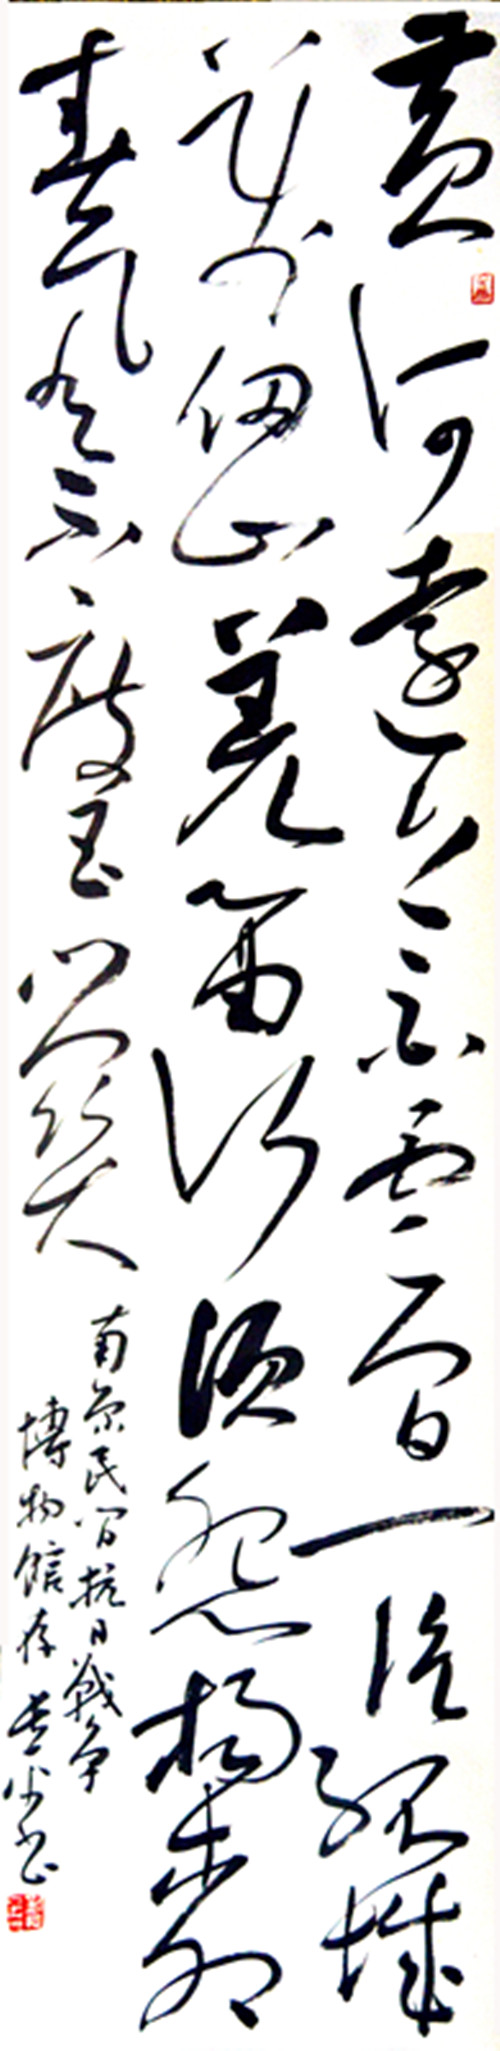 黄河远上白云间一片孤城
万仞山羌笛何须怨杨柳
春风不度玉门关
南京民间抗日战争
博物馆存